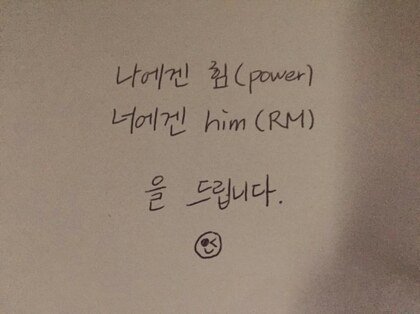 나에겐 힘(power)
너에겐 him(RM)
을 드립니다.